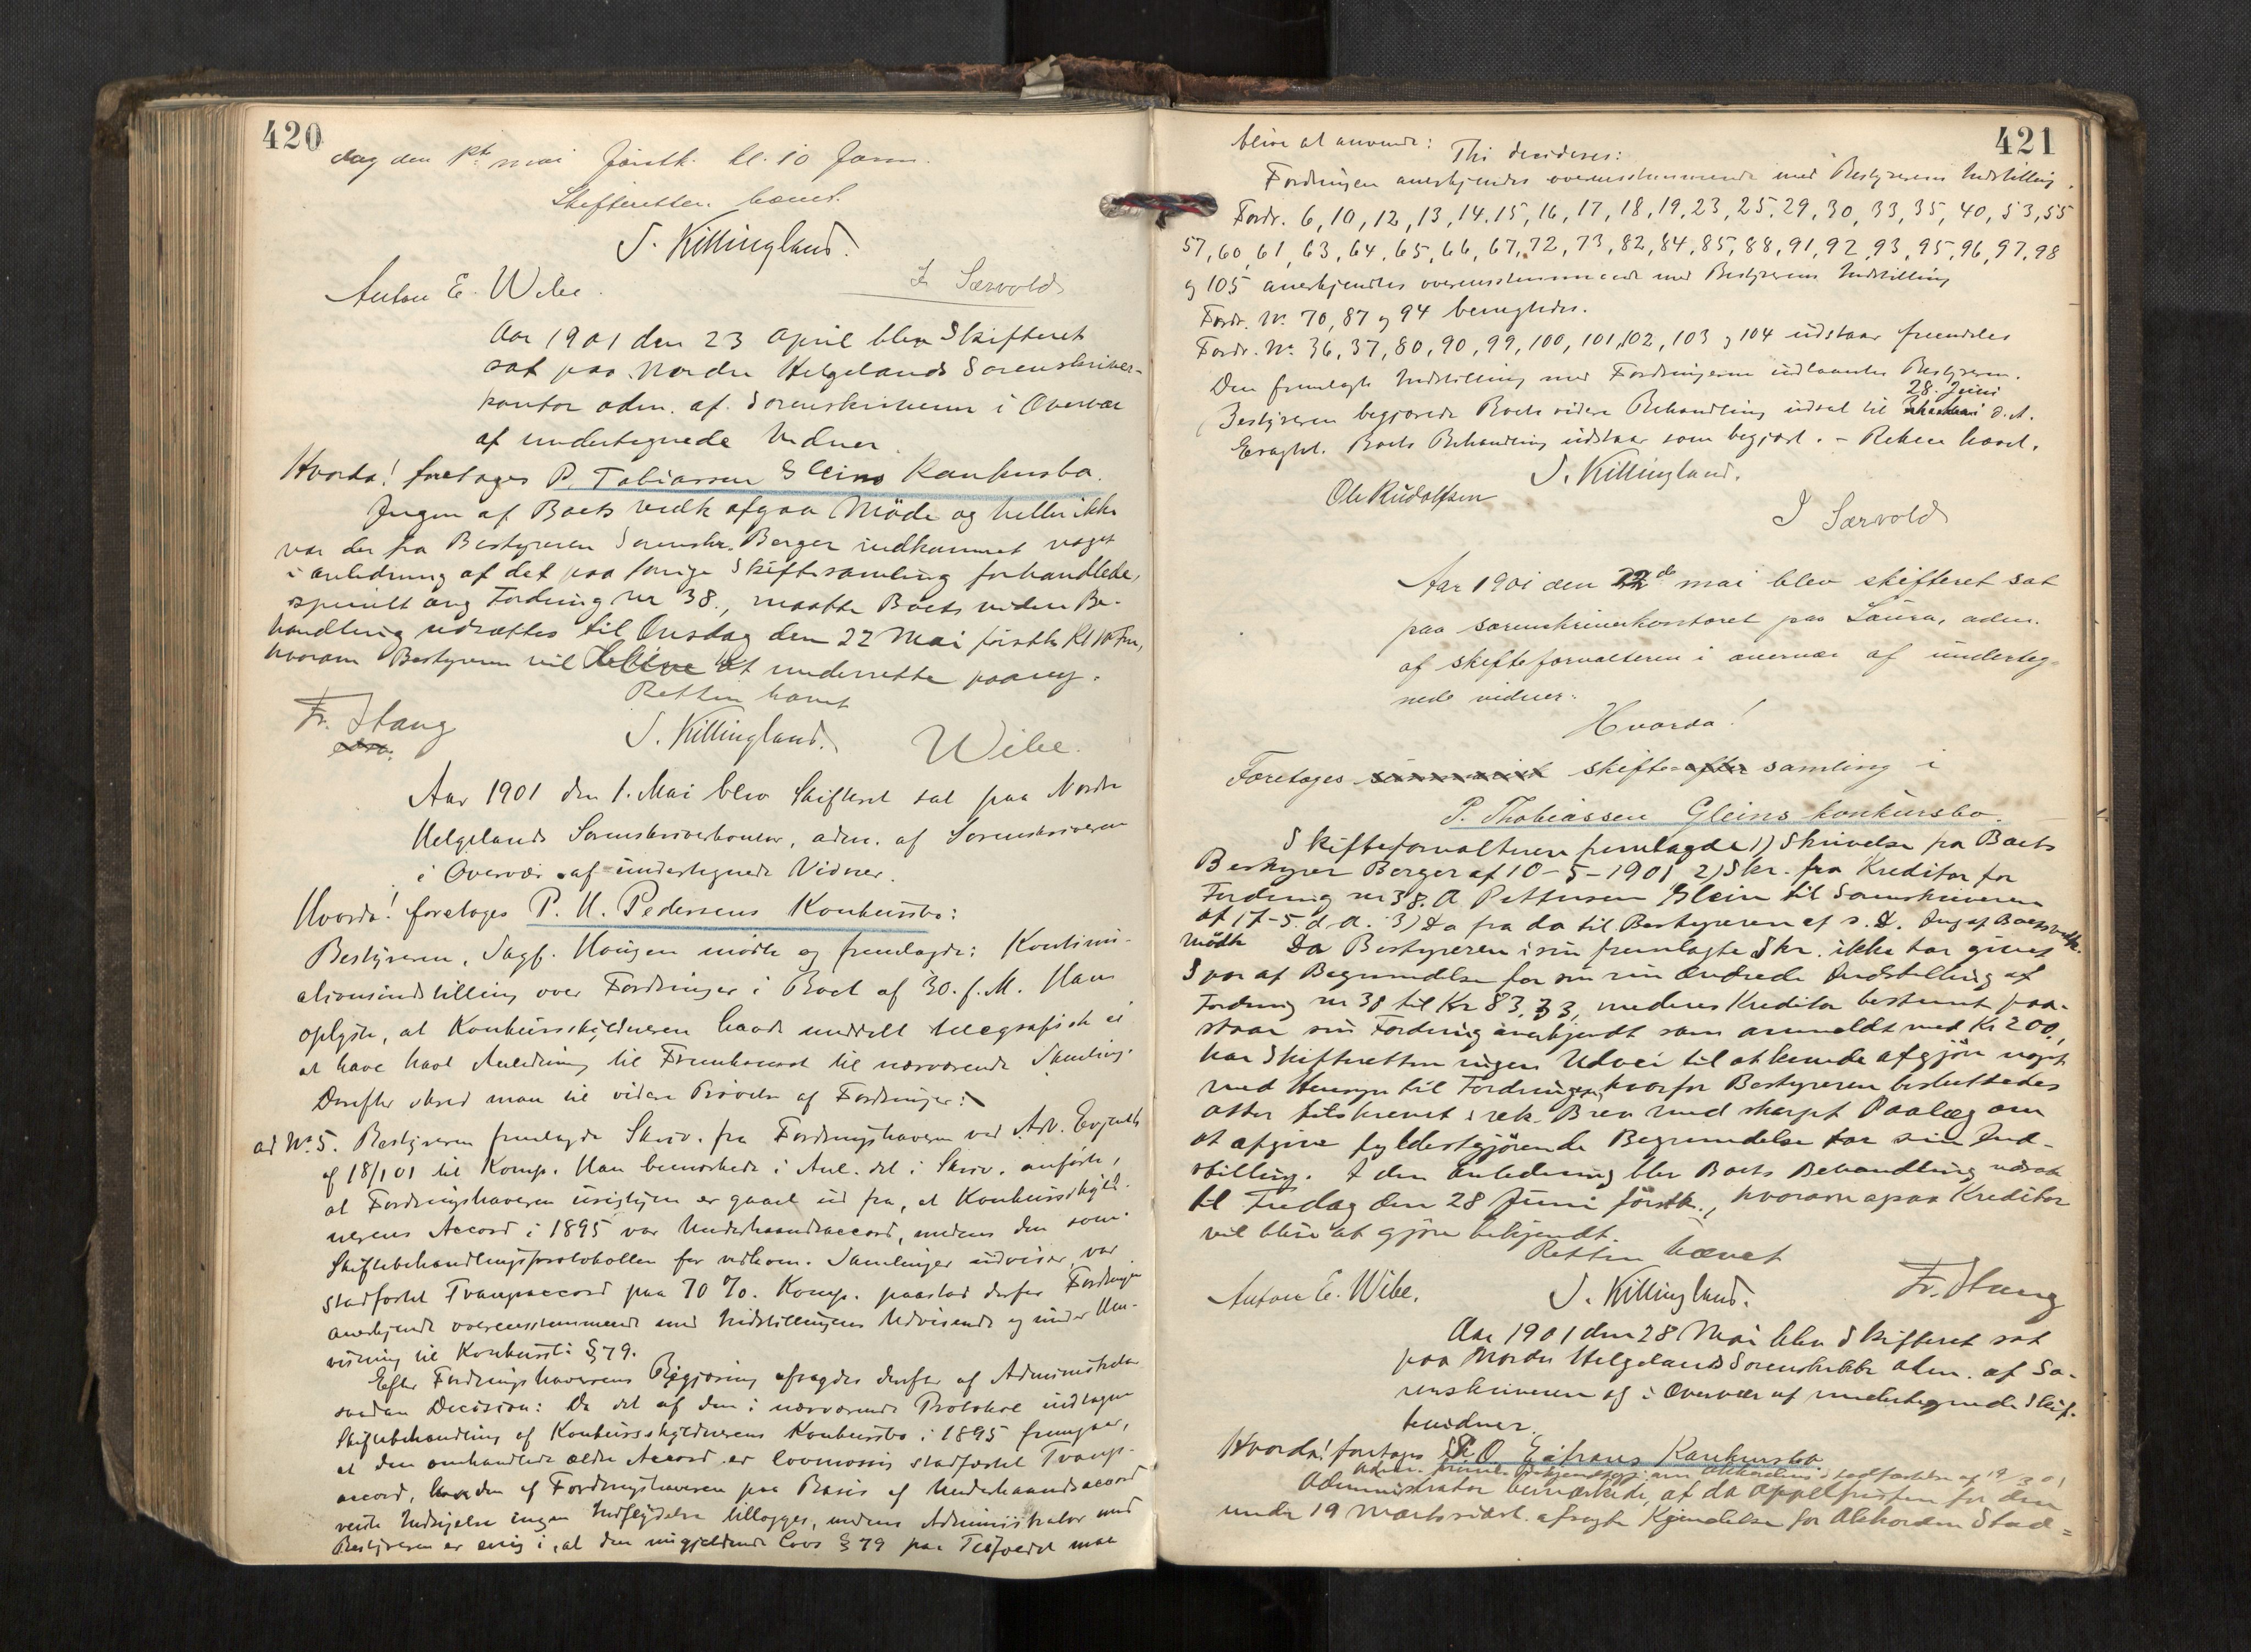 420
dag den 1st mai förstk. kl. 10 Form.
Skifteretten hævet.
S. Killingland.
Anton E. Wibe. I. Særvold
Aar 1901 den 23 April blev Skifteret
sat paa Nordre Helgelands Sorenskriver-
kontor adm. af Sorenskriveren i Overvær
af undertegnede Vidner
Hvorda! foretages P. Tobiassen Gleins Konkursbo.
Ingen af Boets vedk afgaa Möde og heller ikke
var der fra Bestyreren Sorenskr. Berger indkommet noget
i anledning af det paa forrige Skiftesamling forhandlede,
specielt ang Fordring nr 38., maatte Boets videre Be-
handling udsættes til Onsdag den 22 Mai förstk Kl 10 Fm,
hvorom Bestyreren vil blive at underrette paany.
Retten hævet
Fr. Stang S. Killingland. Wibe.
Aar 1901 den 1. Mai blev Skifteret sat paa Nordre
Helgelands Sorenskriverkontor, adm. af Sorenskriveren
i Overvær af undertegnede Vidner.
Hvorda! foretages P. H. Pedersens Konkursbo:
Bestyreren, Sagf. Haugen mödte og fremlagde: Kontinu-
ationsindstilling over Fordringer i Boet af 30. f. M. Han
oplyste, at Konkursskyldneren havde meddelt telegrafisk ei
at have havt Anledning til Fremkomst til nærværende Samling.
Derefter skred man til videre Prövelse af Fordringer:
ad No. 5. Bestyreren fremlagde Skriv. fra Fordringshaveren ved Adv. Evjenth
af 18/1 01 til Komp. Han bemærkede i Anl. det i Skriv. anförte,
at Fordringshaveren urigtigen er gaaet ud fra, at Konkursskyld-
nerens Accord i 1895 var Underhaandsaccord, medens den som
Skiftebehandlingsprotokollen for vedkom. Samlinger udviser, var
stadfæstet Tvangsaccord paa 70 %. Komp. paastod derfor Fordringen
anerkjendt overensstemmende med Indstillingens Udvisende og under Hen-
visning til Konkursl: § 79.
Efter Fordringshaverens Begjæring afsagdes derefter af Administrator
saadan Decision: Da det af den i nærværende Protokol indtagne
Skiftebehandling af Konkursskyldnerens Konkursbo i 1895 fremgaar,
at den omhandlede ældre Accord er lovmæssig stadfæstet Tvangs-
accord, kan den af Fordringshaveren paa Basis af Underhaandsaccord
reiste Indsigelse ingen Indflydelse tillægges, medens Administrator med
Bestyreren er enig i, at den nugjældende Lovs § 79 paa Tilfældet maa
421
blive at anvende: Thi decideres:
Fordringen anerkjendes overensstemmende med Bestyrerens Indstilling.
Fordr. 6, 10, 12, 13, 14. 15, 16, 17, 18, 19. 23, 25. 29, 30, 33, 35, 40, 53, 55
57, 60, 61, 63, 64, 65, 66, 67, 72, 73, 82, 84, 85, 88, 91, 92, 93, 95, 96, 97, 98
og 105 anerkjendtes overensstemmende med Bestyrerens Indstilling
Fordr. No. 70, 87 og 94 benegtedes.
Fordr. No. 36, 37, 80, 90, 99, 100, 101, 102, 103 og 104 udstaar fremdeles
Den fremlagte Indstilling med Fordringerne udlaantes Bestyreren.
Bestyreren begjærede Boets videre Behandling udsat til 28. Juni d. A.
Eragtet. Boets Behandling udstaar som begjært. – Retten hævet.
S. Killingland.
Ole Rudolfsen
I Særvold
Aar 1901 den 22de mai blev skifteret sat
paa sorenskriverkontoret paa Saura, adm.
af skifteforvalteren i overvær af underteg-
nede vidner.
Hvorda!
Foretages skifte samling i
P. Thobiassen Gleins konkursbo.
Skifteforvalteren fremlagde 1) Skrivelse fra Boets
Bestyrer Berger af 10-5-1901 2) Skr. fra Kreditor for
Fordring nr 38. A Pettersen Glein til Sorenskriveren
af 17-5. d. A. 3) Do fra do til Bestyreren af s. D. Ing af Boets vedk.
mödte Da Bestyreren i sin fremlagte Skr. ikke har givet
Spor af Begrundelse for sin ændrede Indstilling af
Fordring nr 38 til Kr 83,33, medens Kreditor bestemt paa-
staar sin Fordring anerkjendt som anmeldt med Kr 200,
har Skifteretten ingen Udvei til at kunde afgjöre noget
med Hensyn til Fordringen, hvorfor Bestyreren besluttedes
atter tilskrevet i rek. Brev med skarpt Paalæg om
at afgive fyldestgjörende Begrundelse for sin Ind-
stilling. I den Anledning blev Boets Behandling udsat
til Fredag den 28 Juni förstk., hvorom ogsaa Kreditor
vil blive at gjöre bekjendt.
Retten hævet
Anton E. Wibe. S. Killingland. Fr. Stang
Aar 1901 den 28 Mai blev Skifteret sat
paa Nordre Helgelands Sorenskrktr adm. af So-
renskriveren og i Overvær af undertegnede Skif-
tevidner.
Hvorda! foretages Konkursbo
Administrator bemærkede, at da Appelfristen for den
under 19 Marts sidstl. afsagte Kjendelse for Akkordens Stad=